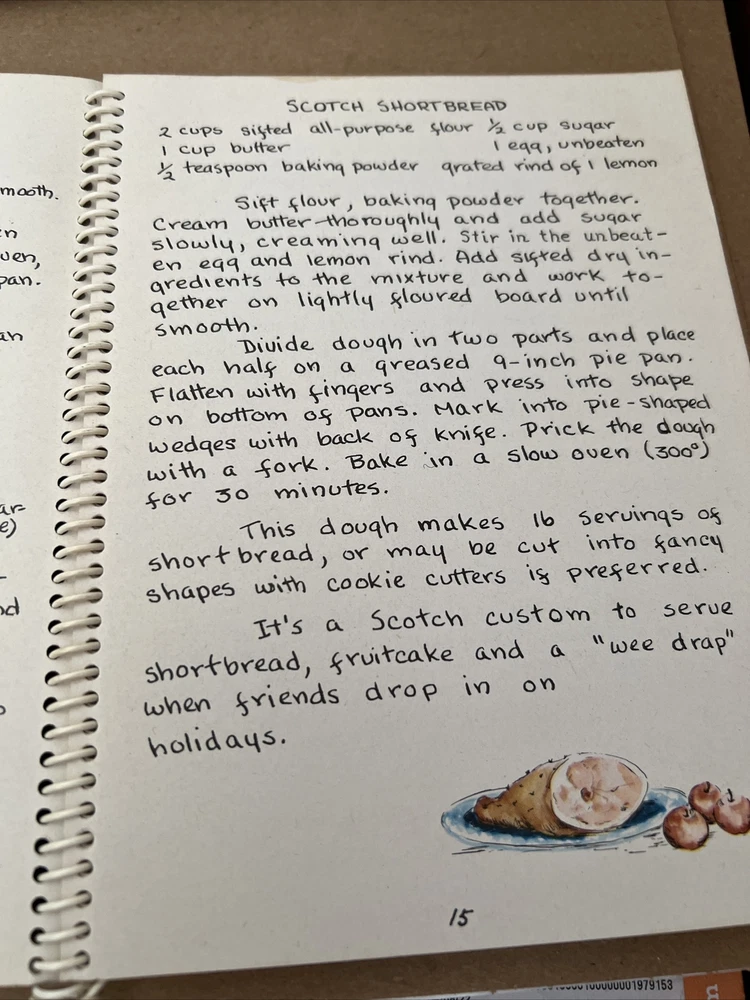 SCOTCH SHORTBREAD
2 cups sifted all-purpose flour ½ cup sugar
1 cup butter 1 egg, unbeaten
½ teaspoon baking powder grated rind of 1 lemon
Sift flour, baking powder together.
Cream butter thoroughly and add sugar
slowly, creaming well. Stir in the unbeat-
en egg and lemon rind. Add sifted dry in-
gredients to the mixture and work to-
gether on lightly floured board until
smooth.
Divide dough in two parts and place
each half on a greased 9-inch pie pan.
Flatten with fingers and press into shape
on bottom of pans. Mark into pie-shaped
wedges with back of knife. Prick the dough
with a fork. Bake in a slow oven (300°)
for 30 minutes.
This dough makes 16 servings of
shortbread, or may be cut into fancy
shapes with cookie cutters if preferred.
It's a Scotch custom to serve
shortbread, fruitcake and a "wee drap"
when friends drop in on
holidays.
15